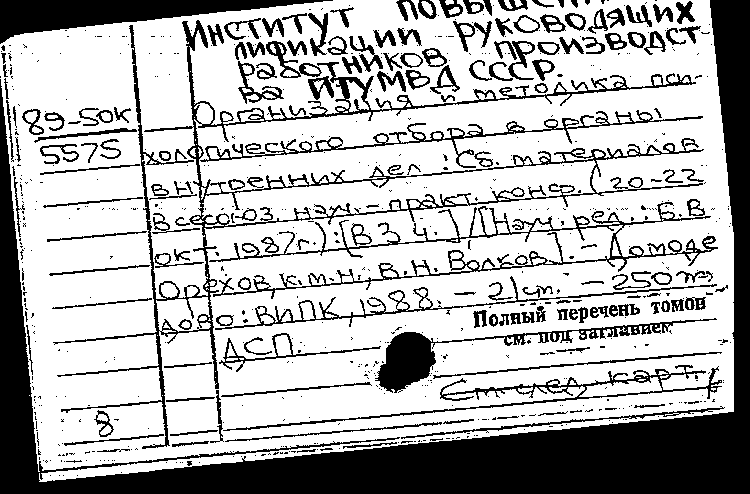 Институт повышен
лификации руководящих
работников производст
ва ИТУ МВД СССР.
89-50к Организация и методика пси-
5575 хологического отбора в органы
внутренних дел : Сб. материалов
Всесоюз. науч.-практ. конф. (20-22
окт. 1987г.) : [В 3 ч.] / [Науч. ред.: Б.В
Орехов, к.м.н., В.Н. Волков]. - Домоде
дово : ВИПК, 1988. - 21 см. - 250
Полный перечень томов
см. под заглавием
ДСП.
См. след. карт.
8